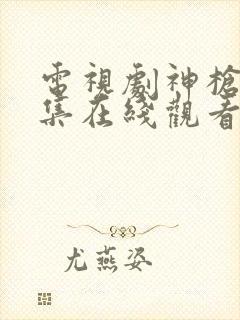 電視劇神槍
集在綫觀看
尤燕姿